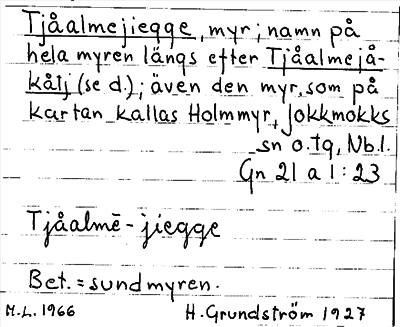 Tjåalmejiegge, myr; namn på
hela myren längs efter Tjåalmejå-
kåtj (se d.); även den myr, som på
kartan kallas Holmmyr, Jokkmokks
sn o. tg, Nb.l.
Gn 21 a 1:23
Tjåalmē-jiegge
Bet. = sundmyren.
M.L. 1966 H. Grundström 1927